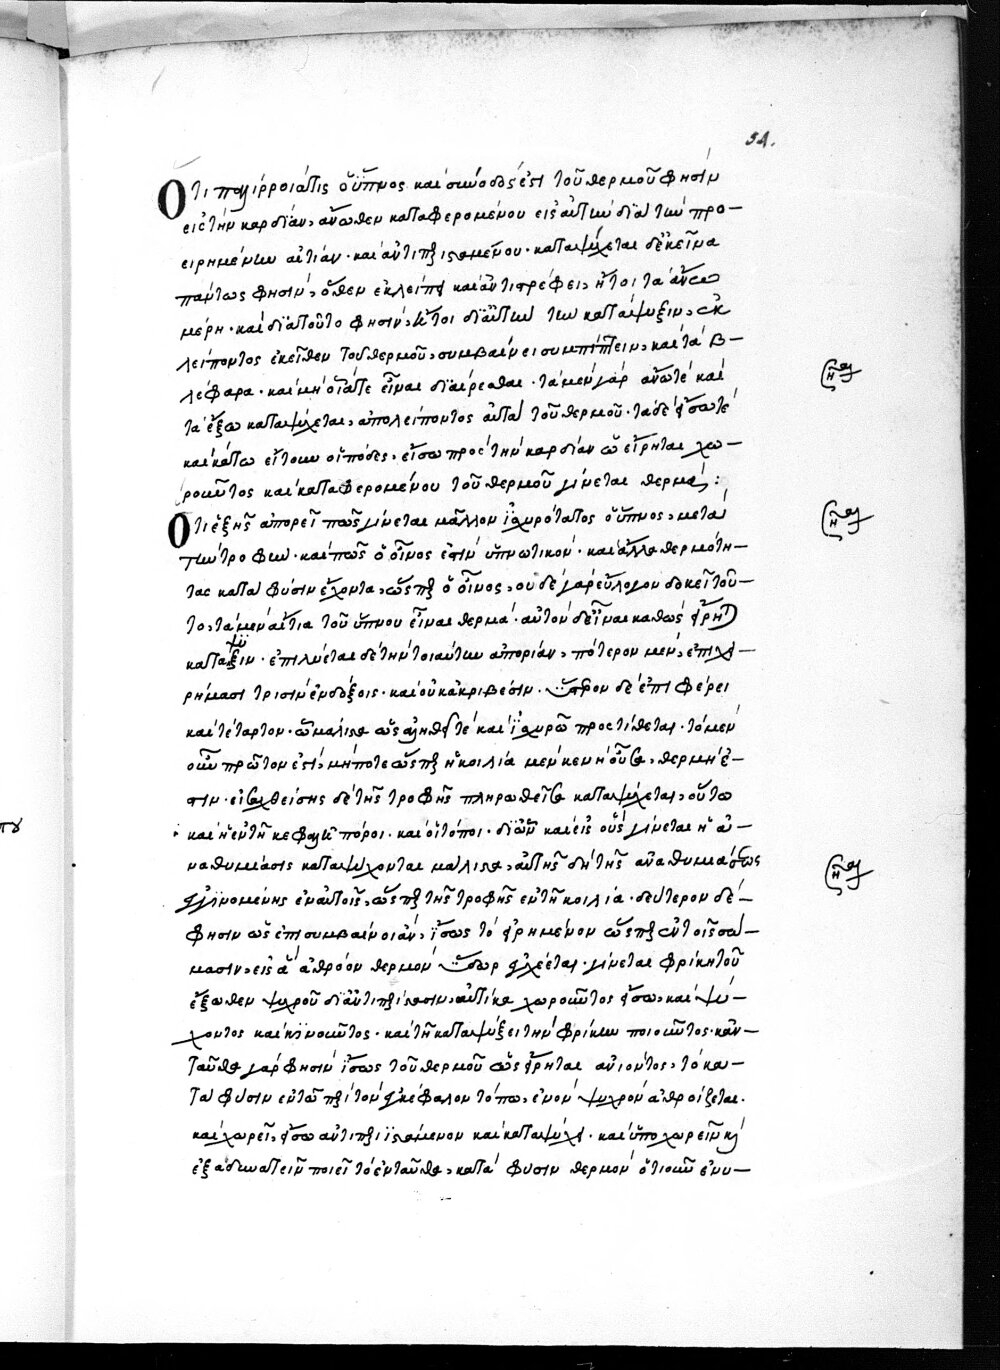 51.
Ὅτι παλίρροιά τις ὁ ὕπνος καὶ σύνοδός ἐστι τοῦ θερμοῦ φησὶν
εἰς τὴν καρδίαν, ἄνωθεν καταφερομένου εἰς αὐτὴν διὰ τὴν προ-
ειρημένην αἰτίαν· καὶ ἀντιπεριισταμένου· καταψύχεται δὲ κεῖνα
πάντως φησὶν, ὅθεν ἐκλείπει καὶ ἀντιστρέφει, ἤτοι τὰ ἄνω
μέρη· καὶ διὰ τοῦτο φησὶν, ἤτοι διὰ τὴν κατάψυξιν, ἐκ
λείποντος ἐκεῖθεν τοῦ θερμοῦ, συμβαίνει συμπίπτειν, καὶ τὰ β-
λέφαρα· καὶ μὴ οἷά τε εἶναι διαίρεσθαι· τὰ μὲν γὰρ ἄνω τὲ καὶ
τὰ ἔξω καταψύχεται, ἀπολείποντος αὐτὰ τοῦ θερμοῦ· τὰ δὲ εἴσω τὲ
καὶ κάτω εἴτουν οἱ πόδες, εἴσω πρὸς τὴν καρδίαν ὡς εἴρηται χω-
ροῦντος καὶ καταφερομένου τοῦ θερμοῦ γίνεται θερμά:
Ὅτι ἑξῆς ἀπορεῖ πῶς γίνεται μᾶλλον ἰσχυρότατος ὁ ὕπνος, μετὰ
τὴν τροφὴν· καὶ πῶς ὁ οἶνος ἐστὶν ὑπνωτικὸν· καὶ ἄλλα θερμότη-
τας κατὰ φύσιν ἔχοντα, ὥσπερ ὁ οἶνος, οὐδὲ γὰρ εὔλογον δοκεῖ τοῦ-
το, τὰ μὲν αἴτια τοῦ ὕπνου εἶναι θερμά· αὐτὸν δὲ εἶναι καθὼς εἴρηται
κατάψυξιν· ἐπιλύεται δὲ τὴν τοιαύτην ἀπορίαν, πότερον μὲν, ἐπιχει-
ρήμασι τρισὶν ἐνδόξοις· καὶ οὐκ ἀκριβέσιν· ὕστερον δὲ ἐπιφέρει
καὶ τέταρτον· ὃ μάλιστα ὡς ἀληθές τε καὶ ἰσχυρῶς προστίθεται· τὸ μὲν
οὖν πρῶτον ἐστὶ, μήποτε ὥσπερ ἡ κοιλία μὲν κενὴ οὖσα, θερμὴ ἐ-
στιν· εἰσαχθείσης δὲ τῆς τροφῆς πληρωθεῖσα καταψύχεται, οὕτω
καὶ οἱ ἐν τῇ κεφαλῇ πόροι· καὶ οἱ τόποι· δι' ὧν καὶ εἰς οὓς γίνεται ἡ ἀ-
ναθυμίασις καταψύχονται μάλιστα, αὐτῆς δὴ τῆς ἀναθυμιάσεως
γινομένης ἐν αὐτοῖς, ὥσπερ τῆς τροφῆς ἐν τῇ κοιλίᾳ· δεύτερον δέ-
φησιν ὡς ἐπισυμβαίνοι ἂν, ἴσως τὸ εἰρημένον ὥσπερ ἐν τοῖς σώ-
μασιν, εἰς ἃ ἀθρόον θερμὸν ὕδωρ ἐγχέεται· γίνεται φρίκη τοῦ
ἔξωθεν ψυχροῦ δι' ἀντιπερίστασιν, αὐτίκα χωροῦντος εἴσω, καὶ ψύ-
χοντος καὶ κινοῦντος· καὶ τῇ καταψύξει τὴν φρίκην ποιοῦντος· κἀν-
ταῦθα γὰρ φησὶν ἴσως τοῦ θερμοῦ ὡς εἴρηται ἀνιόντος, τὸ κα-
τὰ φύσιν ἐν τῷ περὶ τὸν ἐγκέφαλον τόπῳ, ἐνὸν ψυχρὸν ἀθροίζεται·
καὶ χωρεῖ, εἴσω ἀντιπεριιστάμενον καὶ καταψύχει· καὶ ὑποχωρεῖν καὶ
ἐξαδυνατεῖν ποιεῖ τὸ ἐνταῦθα, κατὰ φύσιν θερμὸν ὁτιοῦν ἐνυ-